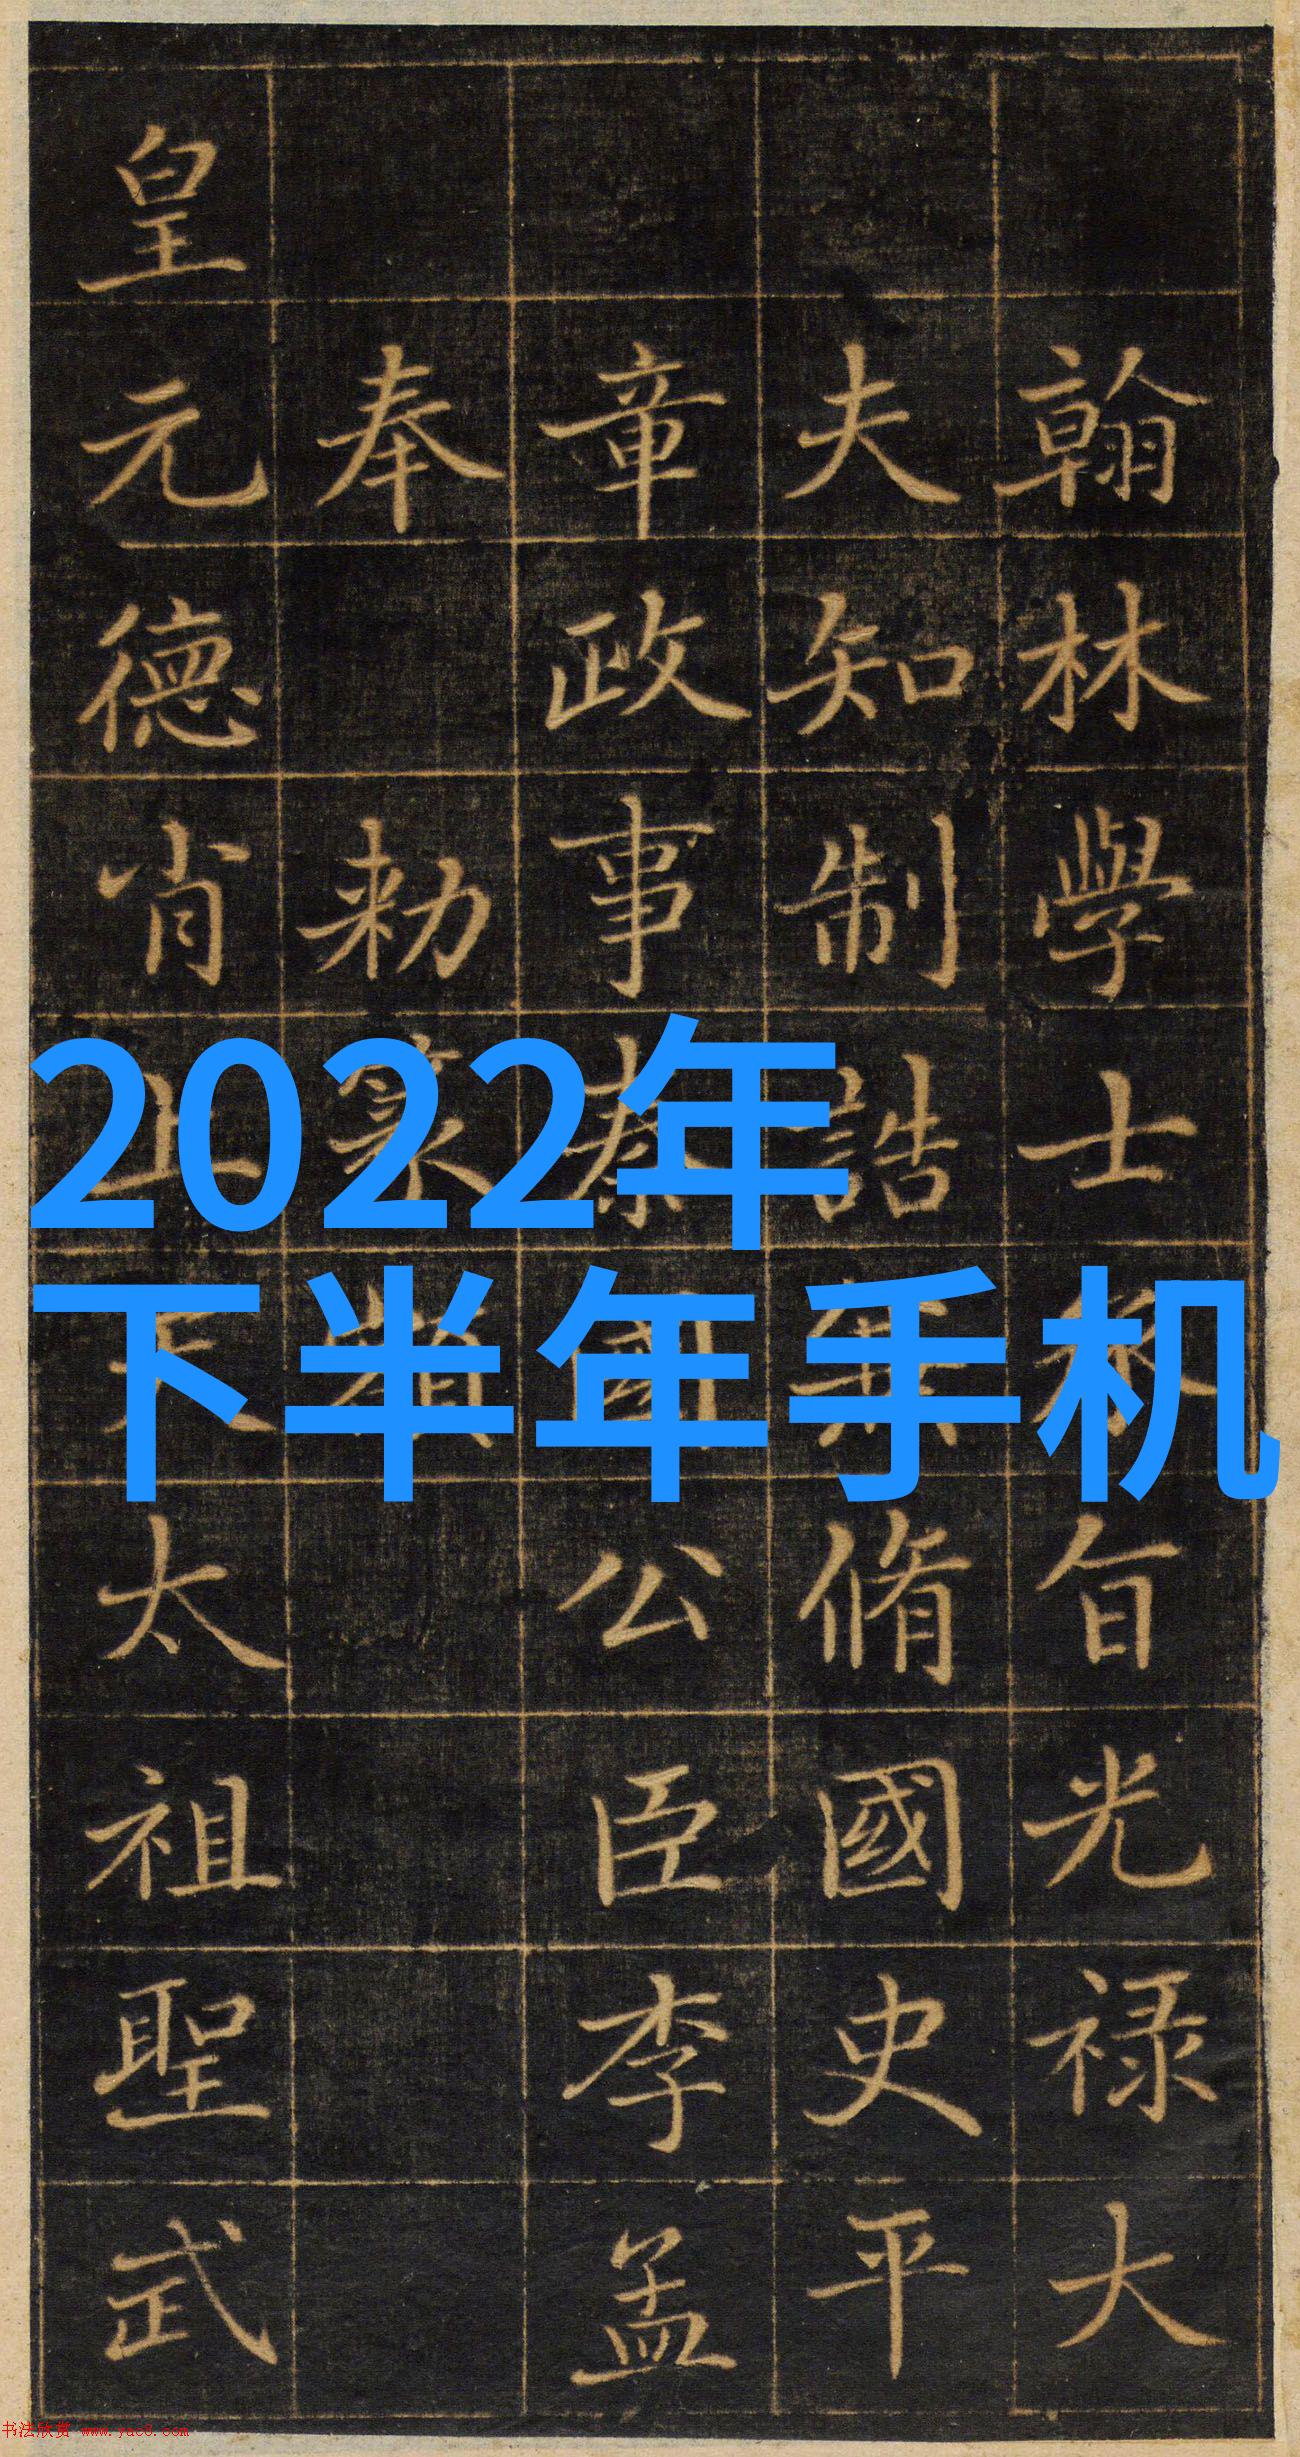 翰林學士承旨光禄大
夫知制誥兼脩國史平
章政事秦國公臣李孟
奉 勅篆額
皇元德肖上天太祖聖武
2022年
下半年手机
书法欣赏 www.yac8.com